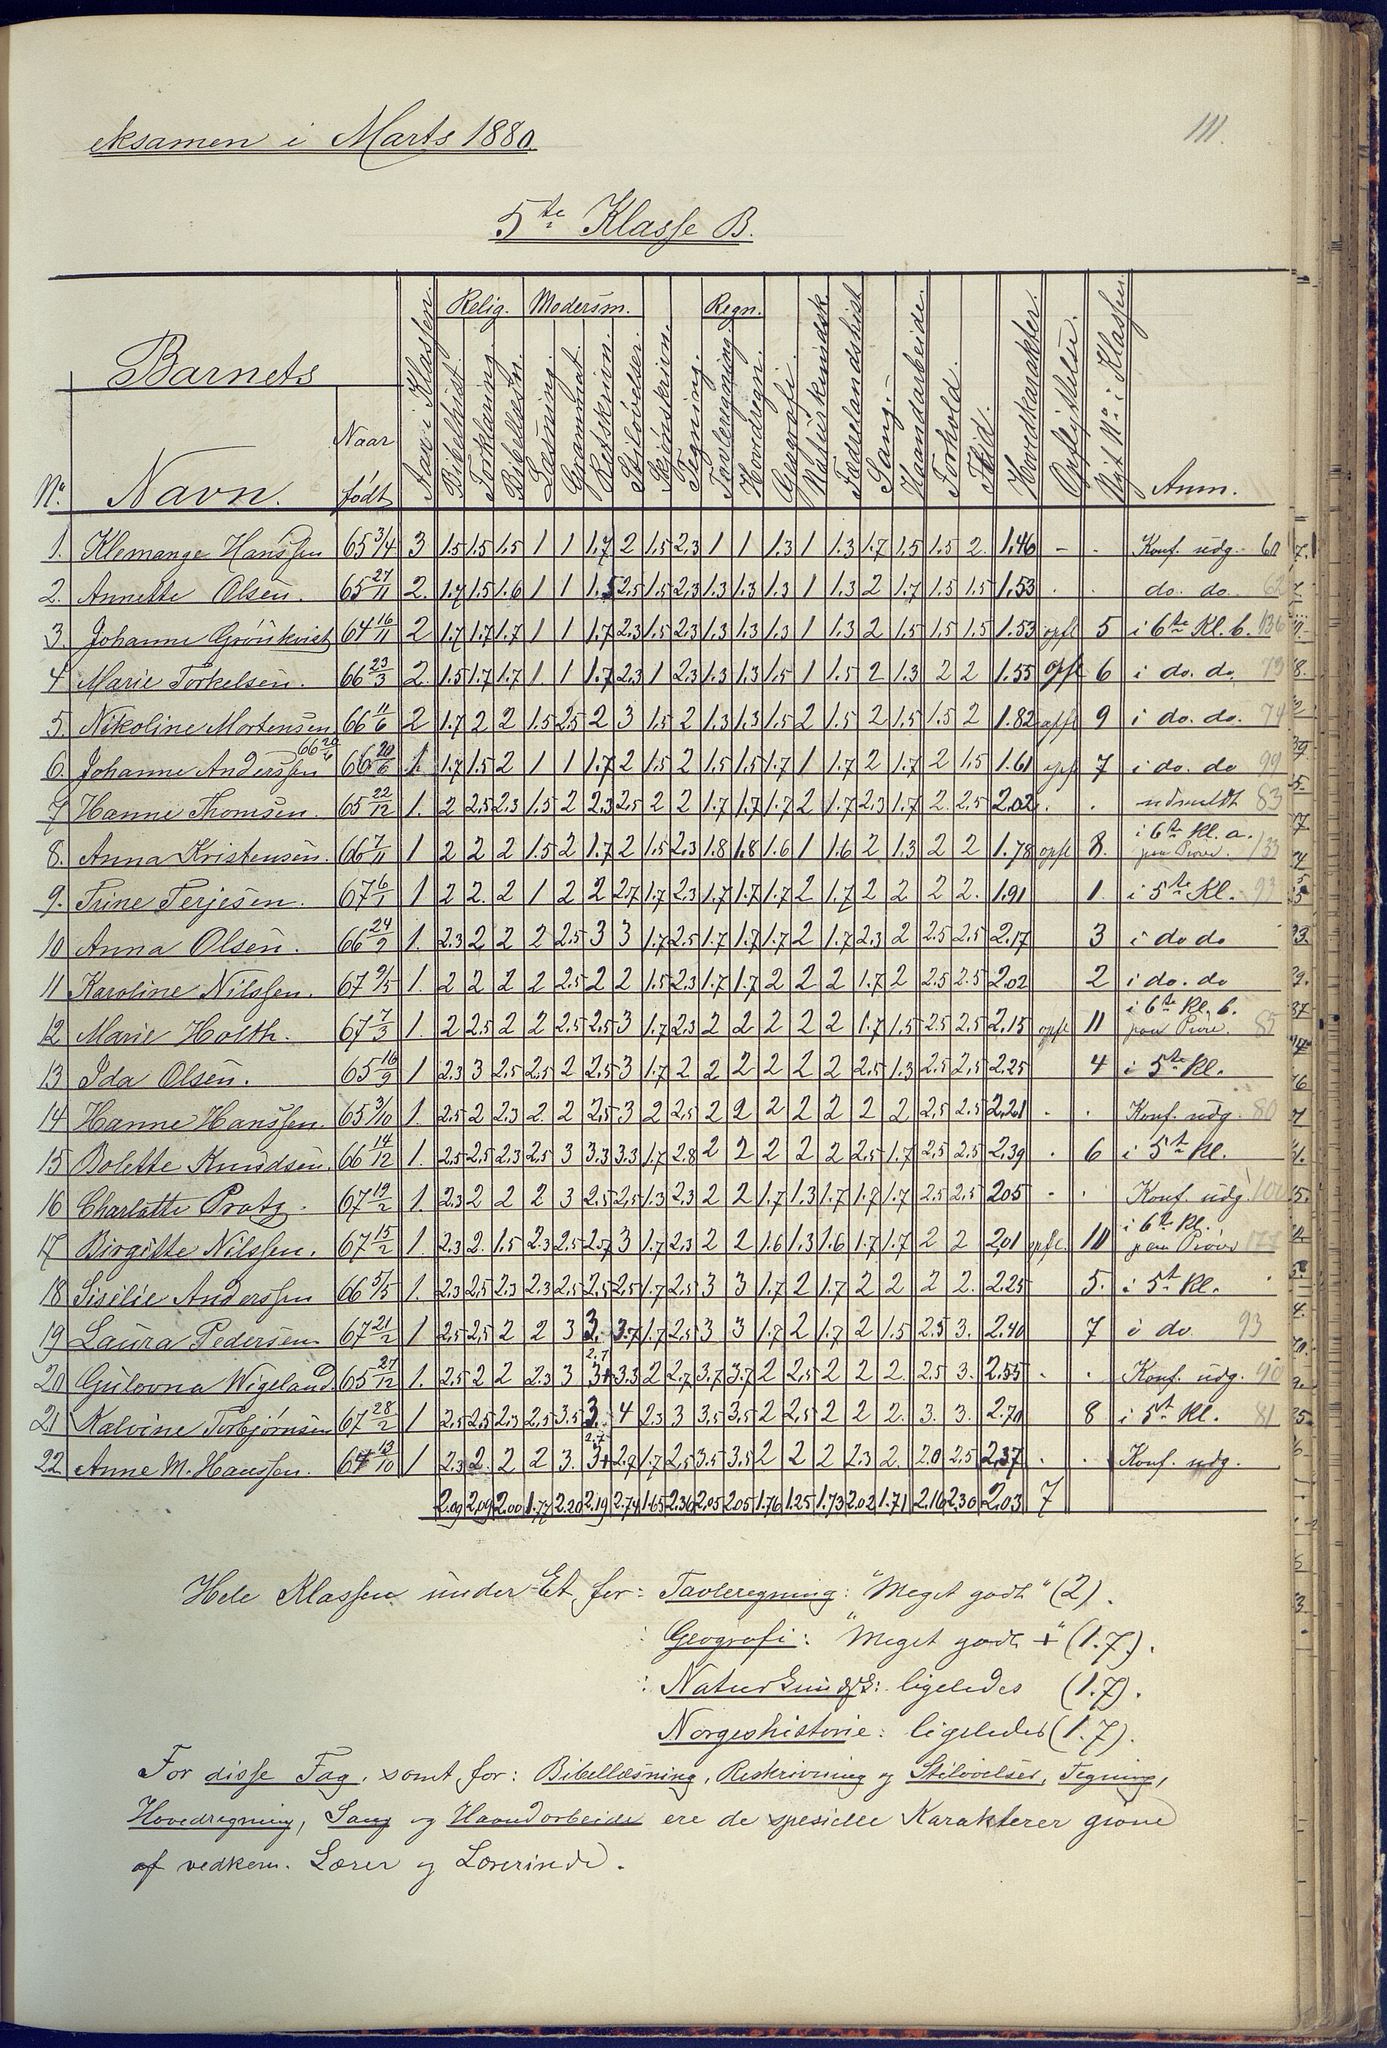 111.
eksamen i Marts 1880.
5te Klasse B.
Barnets
No. Navn. Naar født Aar i Klassen. Relig. Bibelhist. Forklaring. Bibellæsn. Modersm. Læsning. Grammat. Retskrivn. Stiløvelser. Skjönskrivn. Tegning. Regn. Tavleregning. Hovedregn. Geografi. Naturkundsk. Fædrelandshist. Sang. Haandarbeide. Forhold. Flid. Hovedkarakter. Opflyttelse. Nyt No. i Klassen. Anm.
1. Klemange Hanssen 65 3/4 3 1.5 1.5 1.5 1 1 1.7 2 1.5 2.3 1 1 1.3 1 1.3 1.7 1.5 1.5 2. 1.46 - . Konf. udg.
2. Annette Olsen. 65 27/11 2. 1.7 1.5 1.6 1 1 1.5 2.5 1.5 2.3 1.3 1.3 1.3 1 1.3 2 1.7 1.5 1.5 1.53 . . do. do. 62
3. Johanne Grönkvist 64 16/11 2 1.7 1.7 1.7 1 1 1.7 2.3 1.5 2.3 1.3 1.3 1.3 1 1.3 2 1.5 1.5 1.5 1.53 opfl 5 i 6te Kl. b. 136
4 Marie Torkelsen. 66 23/3 2. 1.5 1.7 1.7 1 1 1.7 2.3 1 2.3 1.3 1.3 1.5 1 1.5 2 1.3 2 2 1.55 opfl 6 i do. do. 73
5. Nikoline Mortensen 66 11/6 2 1.7 2 2 1.5 2.5 2 3 1.5 2 1.3 1.3 1.5 2 1.5 2 1.5 1.5 2 1.82 opfl 9 i do. do. 74
6. Johanne Anderssen 66 20/6 66 20/6 1. 1.7 1.5 2 1 1 1.7 2 1.5 2 1.5 1.5 1.7 1 1.7 2 1.7 2 1.5 1.61 opfl 7 i do. do 99
7 Hanne Thomsen. 65 22/12 1. 2 2.5 2.3 1.5 2 2.3 2.5 2 2 1.7 1.7 1.7 2 1.7 2.3 1.7 2. 2.5 2.02 . . udmeldt 83
8. Anna Kristensen. 66 7/11 1 2 2 2 1.5 2 1.7 2 1.5 2.3 1.8 1.8 1.6 1 1.6 2 1.3 2 2 1.78 opfl 8. i 6te Kl. a. paa Prøve. 133
9. Trine Terjesen. 67 6/1 1 2 2. 2 1 2 2 2.7 1.7 2.3 1.7 1.7 1.7 2 1.7 2 2 2 2. 1.91 1. i 5te Kl. 93
10 Anna Olsen. 66 24/9 1. 2.3 2 2 2 2.5 3 3 1.7 2.5 1.7 1.7 1.7 2 1.7 2.3 2 2.5 2.5 2.17 3 i do do
11 Karoline Nilssen. 67 2/5 1. 2 2 2 2 2.5 2 2 1.5 2.3 1.7 1.7 2 2 2 1.7 2 2.5 2.5 2.02 2 i do. do
12 Marie Holth. 67 7/3 1. 2 2.5 2 2 2.5 2.5 3 1.7 2.3 2 2 2 2 2 1.7 1.5 2.5 2.5 2.15 opfl 11 i 6te Kl. b. paa Prøve. 85
13 Ida Olsen. 65 16/9 1 2.3 3 2.5 2.5 2 2.5 3 1.7 2 2 2 2 2 2 2.5 1.3 2.5 2.5 2.25 4 i 5te Kl.
14 Hanne Hanssen. 65 3/10 1. 2.5 2 2.3 2. 2 2.5 3 2 2.5 2 2 2 2 2 2 2 2.5 2.5 2.21 . . Konf. udg. 80
15 Bolette Knudsen. 66 14/12 1. 2.5 2.5 2.3 2.5 3 3.3 3.3 1.7 2.8 2 2 2 2 2 2.5 1.7 2.5 2.5 2.39 . 6 i 5te Kl.
16 Charlotte Pratz. 67 19/2 1. 2.3 2 2 2 3 2.5 2.5 1.3 2.3 2 2 1.7 1.3 1.7 1.7 1.7 2.5 2.5 2.05 . . Konf. udg.
17 Birgitte Nilssen. 67 15/2 1. 2.3 2. 1.5 2.3 2.5 2.7 3 1.7 2.3 2 2 1.6 1.3 1.6 1.7 1.7 2 2 2.01 opfl. 10 i 6te Kl. paa Prøve
18 Siselie Anderssen 66 5/5 1. 2.3 2.5 2.3 2.3 2.5 2.5 2.5 1.7 2.5 3 3 1.7 2 1.7 2 2 2 2. 2.25 5. i 5te Kl.
19 Laura Pedersen. 67 21/2 1 2.5 2.5 2 2 3 3. 3.7 1.7 2.5 3 3 1.7 2 1.7 2 1.5 2.5 3. 2.40 7 i do 93
20 Gulovna Wigeland 65 27/12 1. 2.5 2 2 2.3 3 2.7 3+ 3.3 2 2.7 3.7 3.7 2 2.5 2 2 2. 2.5 3. 2.55 . . Konf. udg. 90
21 Kalvine Torbjørnsen 67 28/2 1 2.5 2.5 2.3 2.5 3.5 3. 4 2.3 3 3.5 3.5 2 2.5 2 2 2. 3. 3. 2.70 8 i 5te Kl. 81
22 Anne M. Hanssen. 64 13/10 1 2.3 2. 2 2 3. 2.7 3+ 2.7 1.7 2.5 3.5 3.5 2 2 2 2.3 2 2.0 2.5 2.37 . . Konf. udg.
2.09 2.09 2.00 1.77 2.20 2.19 2.74 1.65 2.36 2.05 2.05 1.76 1.25 1.73 2.02 1.71 2.16 2.30 2.03 7
Hele Klassen under Et for: Tavleregning: "Meget godt" (2).
: Geografi: "Meget godt +" (1.7).
: Naturkundsk: ligeledes (1.7).
Norgeshistorie: ligeledes (1.7).
For disse Fag, samt for: Bibellæsning, Retskrivning og Stiløvelser, Tegning,
Hovedregning, Sang og Haandarbeide ere de spesielle Karakterer givne
af vedkom. Lærer og Lærerinde.